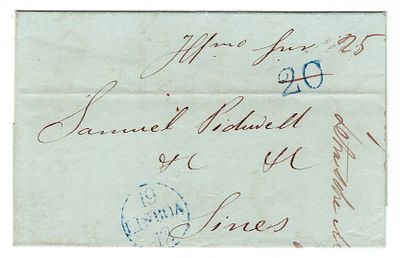 Illmo Snr 25
20
Samuel Pidwell
&c &c
19
LISBOA
12
Sines